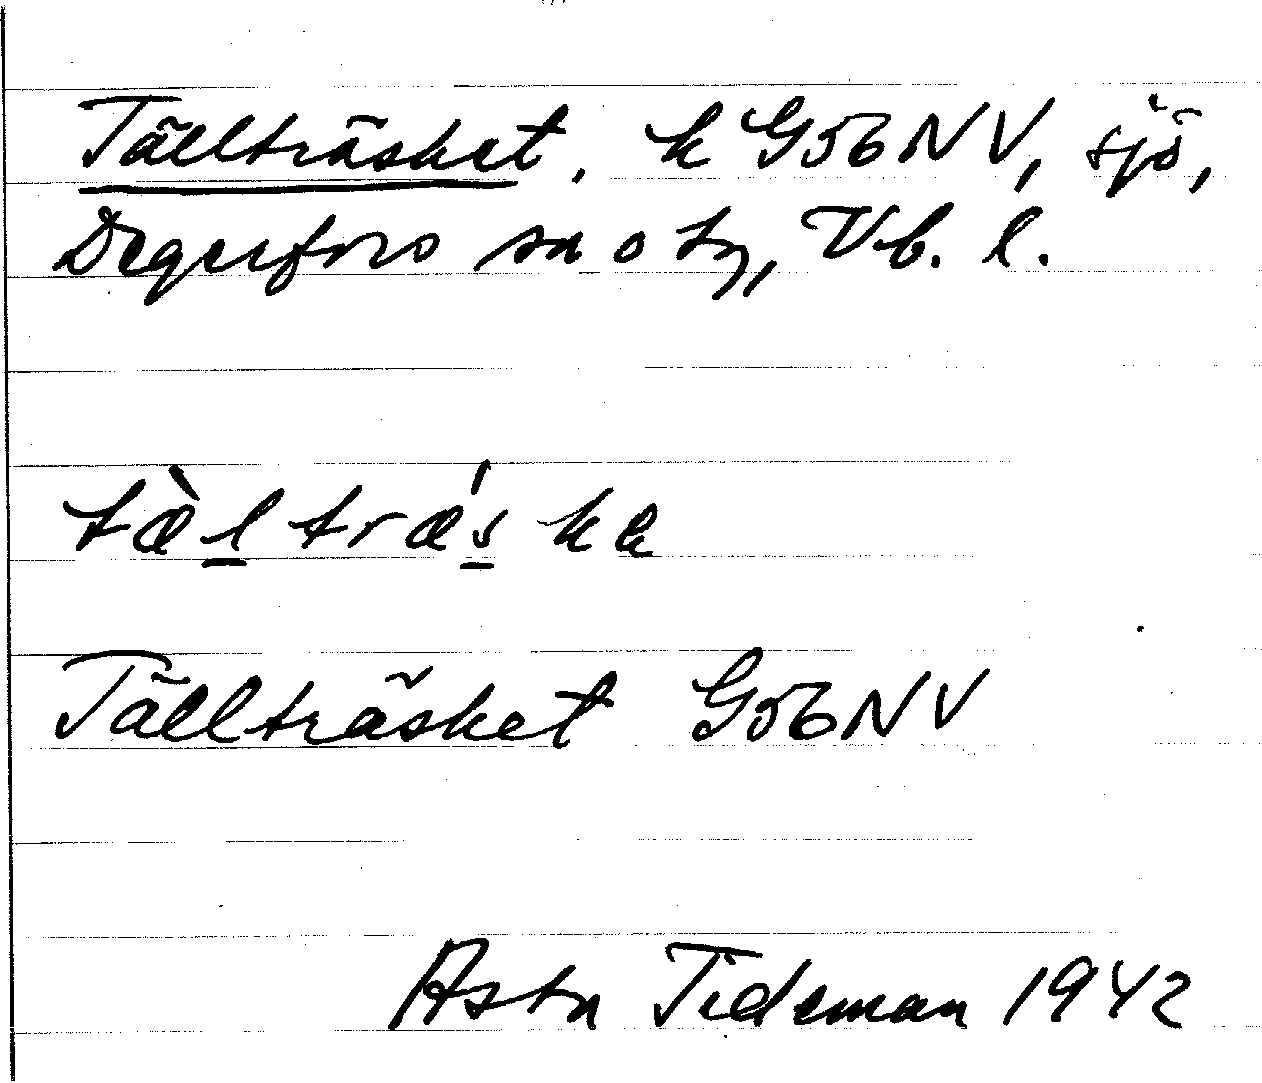 Tällträsket, k G56NV, sjö,
Degerfors sn o tg, Vb. l.
tæ̀l̲træ´s̲ke
Tällträsket G56NV
Asta Tideman 1942